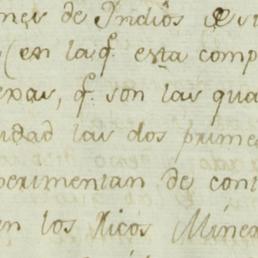 nes de Indiôs
(en la q.e esta comp
exas, q.e son las qua
idad las dos prime
perimentan de cont
en los Ricos Miner